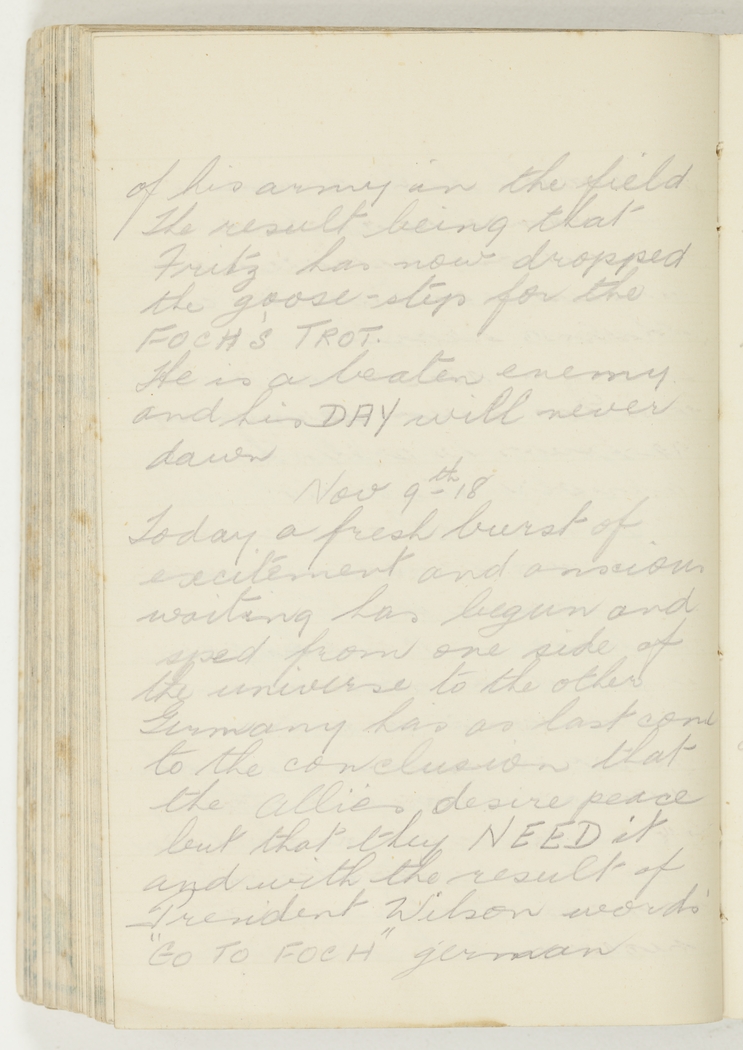 of his army in the field
The result being that
Fritz has now dropped
the goose-step for the
FOCH'S TROT.
He is a beaten enemy
and his DAY will never
dawn
Nov 9th 18
Today a fresh burst of
excitement and anscious
waiting has begun and
sped from one side of
the universe to the other
Germany has as last come
to the conclusion that
the allies desire peace
but that they NEED it
and with the result of
President Wilson words
"GO TO FOCH" german